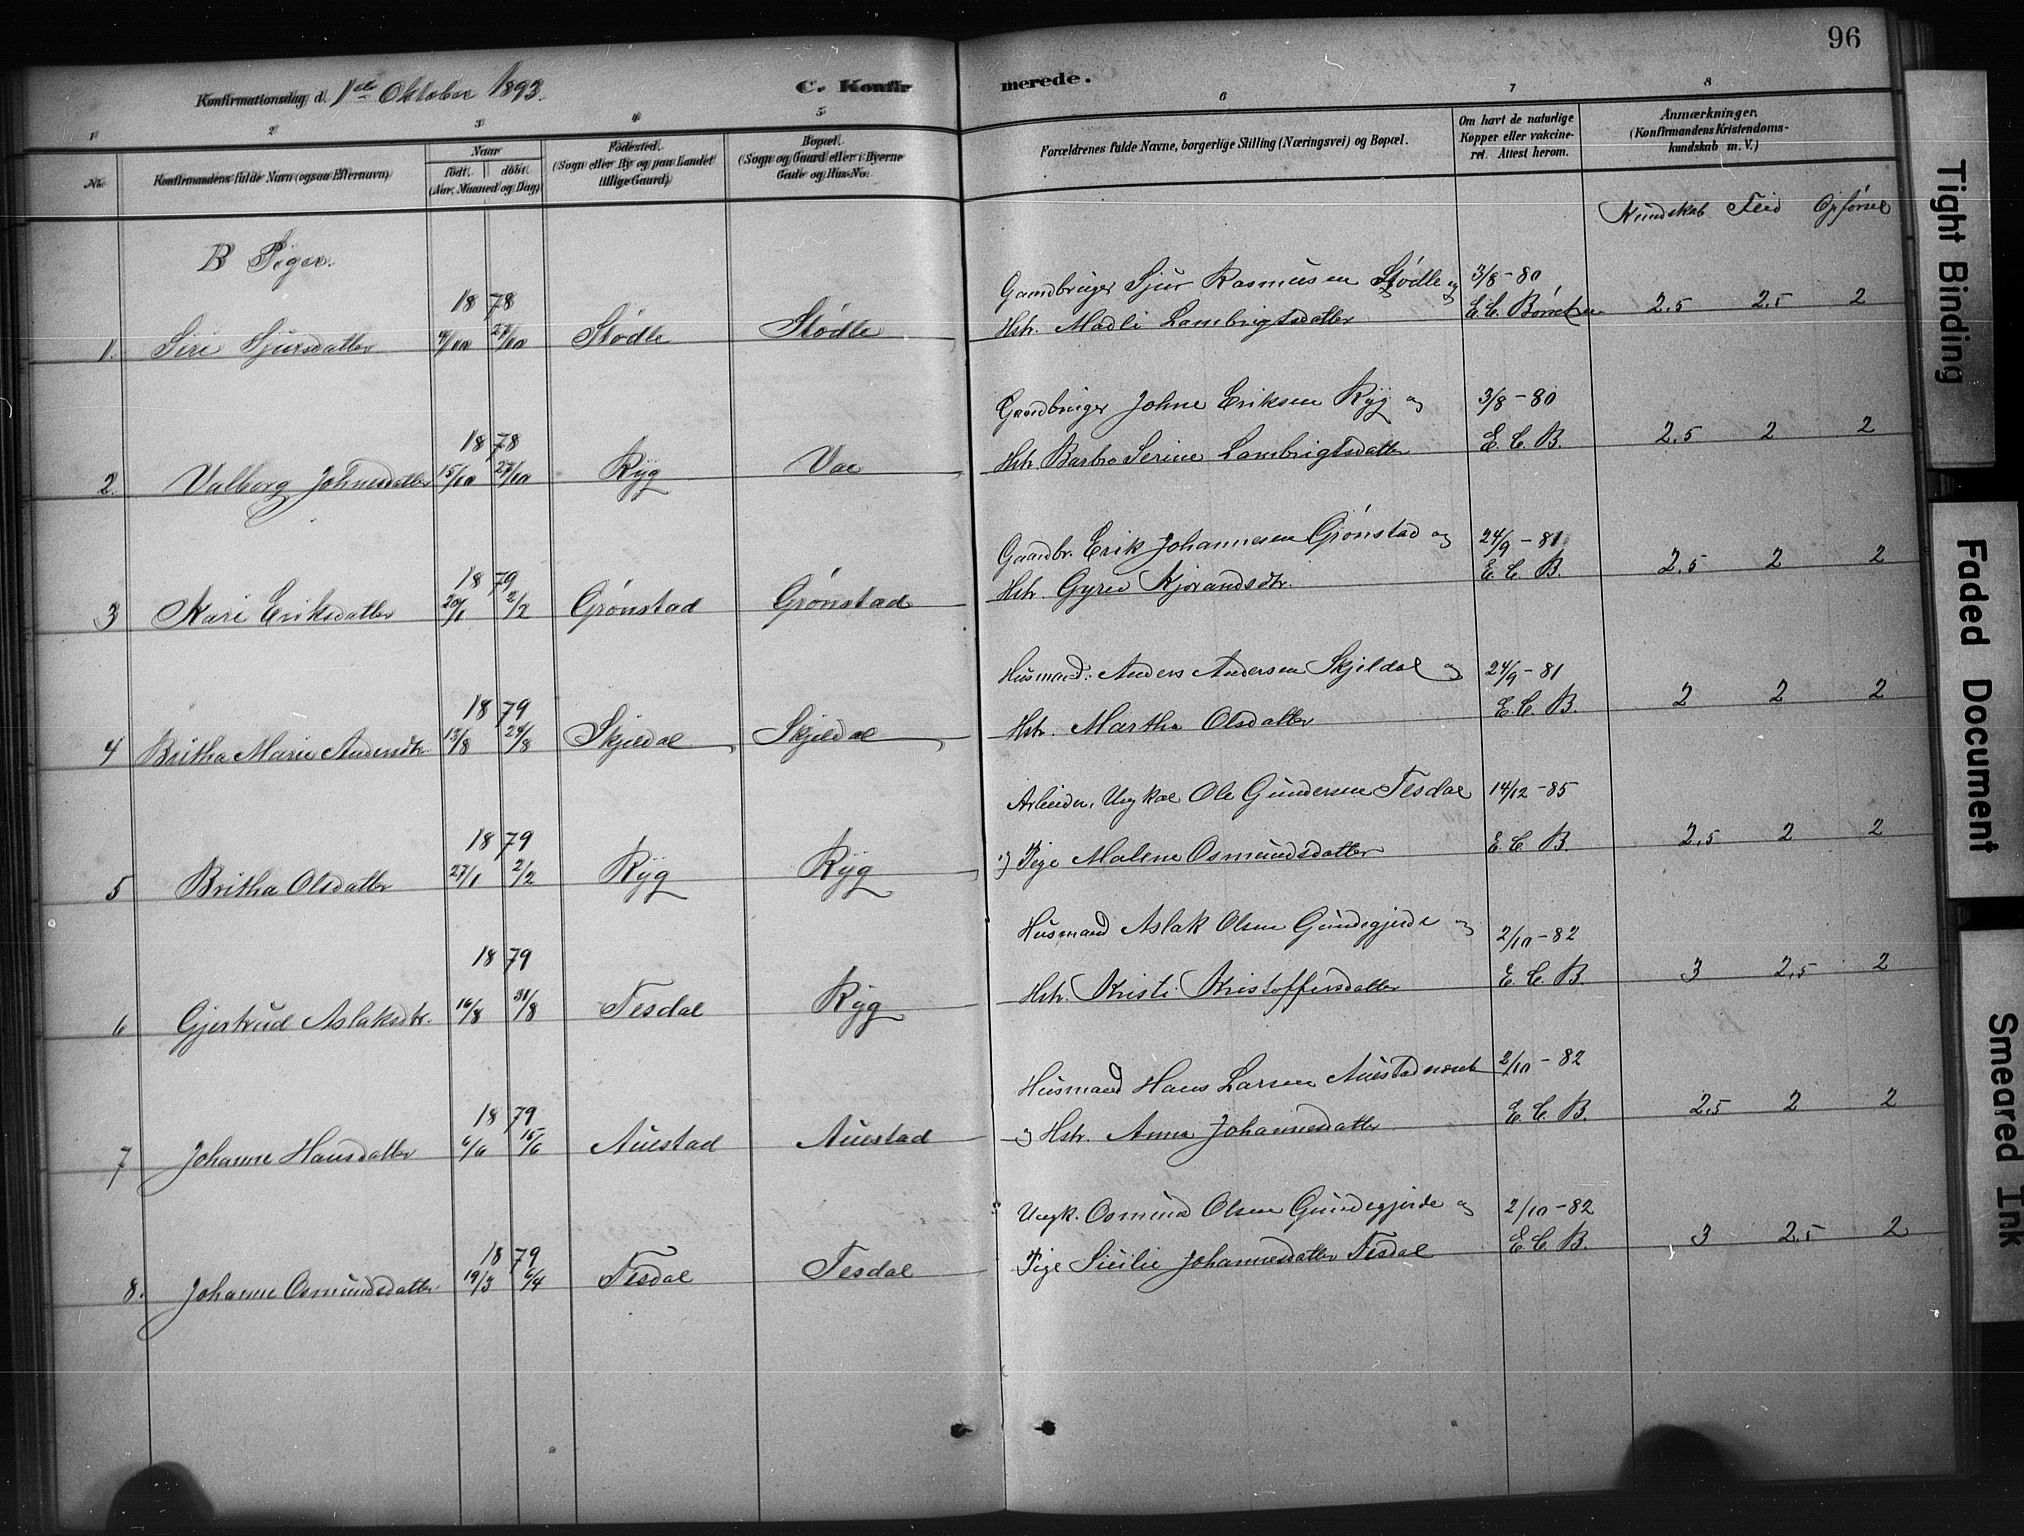 96
Konfirmationsdag d. 1ste Oktober 1893.
C. Konfirmerede.
1 2 3 4 5 6 7 8
No.
Konfirmandens fulde Navn (ogsaa Efternavn)
Naar
født. døbt.
(Aar, Maaned og Dag)
Fødested.
(Sogn eller By og paa Landet
tillige Gaard.)
Bopæl.
(Sogn og Gaard eller i Byerne
Gade og Hus-No.
Forældrenes fulde Navne, borgerlige Stilling (Næringsvei) og Bopæl.
Om havt de naturlige
Kopper eller vakcine-
ret. Attest herom.
Anmærkninger.
(Konfirmandens Kristendoms-
kundskab m. V.)
Kundskab Flid Opførsel
B Piger.
1878
1. Siri Sjursdatter 27/10 Stødle Stødle
Gaardbruger Sjur Rasmusen Stødle og 3/8-80
Hstr. Madli Lambrigtsdatter E. C. Børretzen 2.5 2.5 2
1878
2. Valborg Johnesdatter 15/10 27/10 Ryg Vae
Gaardbruger Johne Eriksen Ryg og 3/8-80
Hstr. Barbro Serine Lambrigtsdatter E. C. B. 2.5 2 2
1879
3 Kari Eriksdatter 20/1 2/2 Grønstad Grønstad
Gaardbr. Erik Johannesen Grønstad og 24/9-81
Hstr. Gyrid Kjorandsdtr. E. C. B. 2.5 2 2
1879
4 Britha Marie Andersdtr. 13/8 24/8 Skjeldal Skjeldal
Husmand: Anders Andersen Skjeldal og 24/9-81
Hstr. Martha Olsdatter E. C. B. 2 2 2
1879
5 Britha Olsdatter 27/1 2/2 Ryg Ryg
Arbeider, Ungkal Ole Gundersen Tesdal 14/12-85
og Pige Malene Osmundsdatter E C B. 2.5 2 2
1879
6 Gjertrud Aslaksdtr. 16/8 31/8 Tesdal Ryg
Husmand Aslak Olsen Gundegjerde og 2/10-82
Hstr. Kristi Kristoffersdatter E. C. B. 3 2.5 2
1879
7 Johanne Hansdatter 6/6 15/6 Auestad Auestad
Husmand Hans Larsen Auestadneset 2/10-82
og Hstr. Anna Johannesdatter E. C. B. 2.5 2 2
1879
8. Johanne Osmundsdatter 19/3 6/4 Tesdal Tesdal
Ungk. Osmund Olsen Gundegjerde og 2/10-82
Pige Sicilie Johannesdatter Tesdal E C B. 3 2.5 2
Tight Binding
Faded Document
Smeared Ink